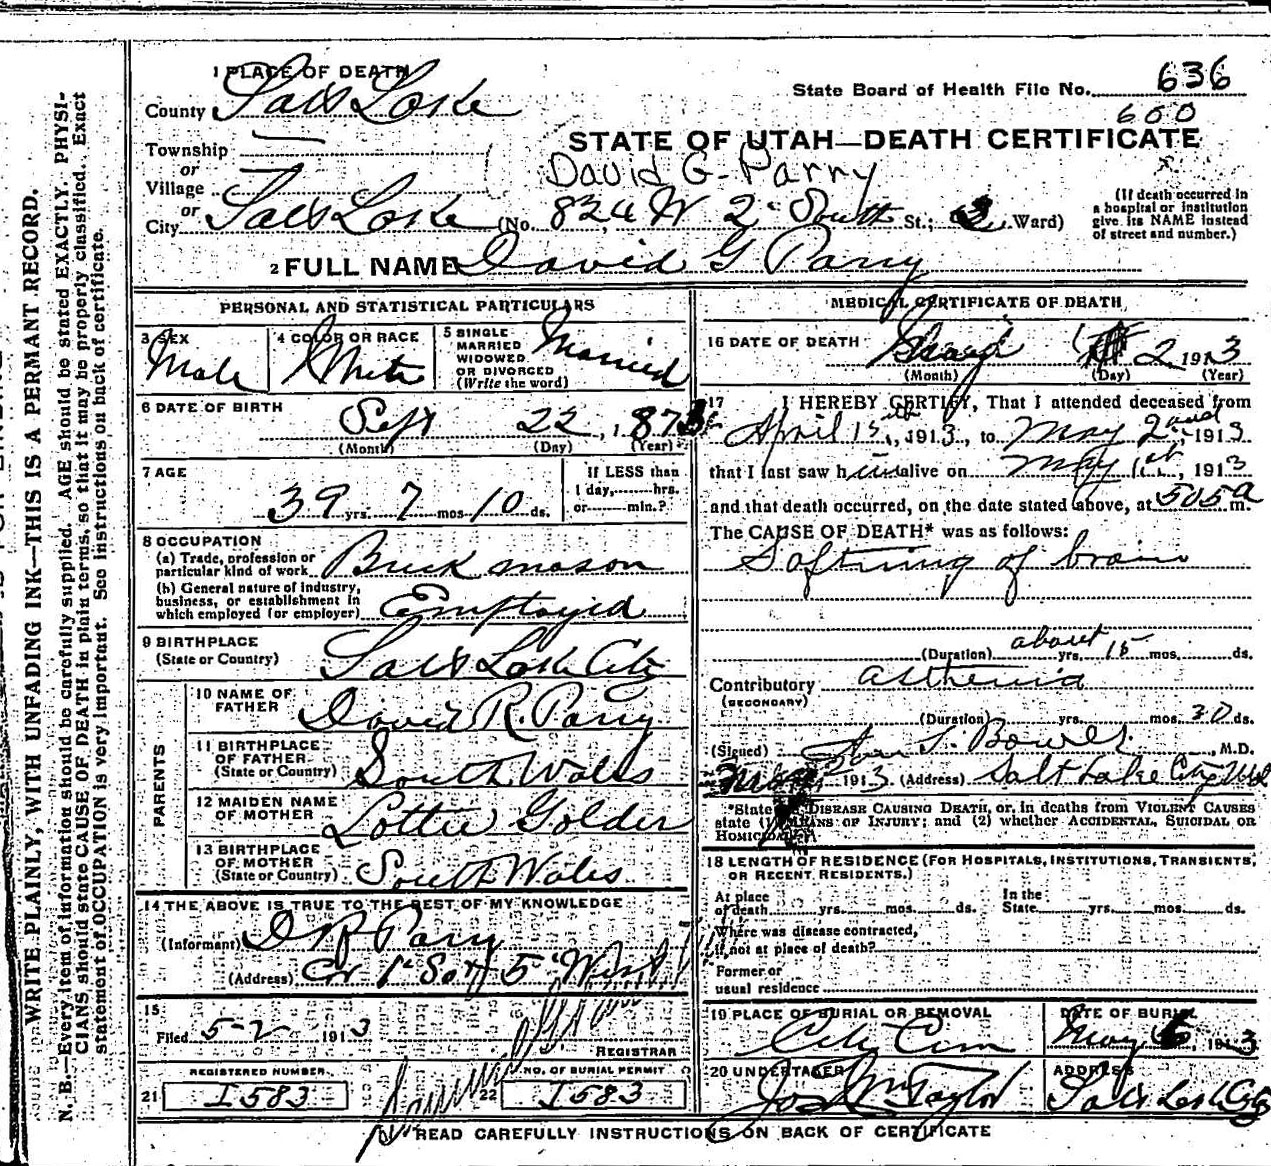 1 PLACE OF DEATH
County Salt Lake
State Board of Health File No. 636
600
Township
or
Village
or
STATE OF UTAH—DEATH CERTIFICATE
David G. Parry
City Salt Lake (No. 824 W 2d South St.; Ward)
(If death occurred in
a hospital or institution
give its NAME instead
of street and number.)
2 FULL NAME David G Parry
PERSONAL AND STATISTICAL PARTICULARS
3 SEX
Male
4 COLOR OR RACE
White
5 SINGLE
MARRIED
WIDOWED
OR DIVORCED
(Write the word)
Married
6 DATE OF BIRTH
Sept 22, 1873
(Month) (Day) (Year)
7 AGE
39 yrs. 7 mos. 10 ds.
If LESS than
1 day, hrs.
or min.?
8 OCCUPATION
(a) Trade, profession or
particular kind of work Brick mason
(b) General nature of industry,
business, or establishment in
which employed (or employer) Employed
9 BIRTHPLACE
(State or Country) Salt Lake City
PARENTS
10 NAME OF
FATHER David R. Parry
11 BIRTHPLACE
OF FATHER
(State or Country) South Wales
12 MAIDEN NAME
OF MOTHER Lottie Golder
13 BIRTHPLACE
OF MOTHER
(State or Country) South Wales
14 THE ABOVE IS TRUE TO THE BEST OF MY KNOWLEDGE
(Informant) D R Parry
(Address) Cor 1st So & 5 West
15
Filed 5-2 1913
REGISTRAR
REGISTERED NUMBER
21 I583
NO. OF BURIAL PERMIT
22 I583
MEDICAL CERTIFICATE OF DEATH
16 DATE OF DEATH 2 1913
(Month) (Day) (Year)
17 I HEREBY CERTIFY, That I attended deceased from
April 15th, 1913, to May 2nd, 1913
that I last saw him alive on May 1st, 1913
and that death occurred, on the date stated above, at 505 a m.
The CAUSE OF DEATH* was as follows:
Softning of brain
(Duration) about yrs. 15 mos. ds.
Contributory asthenia
(SECONDARY)
(Duration) yrs. mos. 30 ds.
(Signed) Bower, M.D.
1913 (Address) Salt Lake City Utah
*State DISEASE CAUSING DEATH, or, in deaths from VIOLENT CAUSES
state (1) MEANS OF INJURY; and (2) whether ACCIDENTAL, SUICIDAL OR
HOMICIDAL
18 LENGTH OF RESIDENCE (FOR HOSPITALS, INSTITUTIONS, TRANSIENTS,
OR RECENT RESIDENTS.)
At place
of death yrs. mos. ds.
In the
State yrs. mos. ds.
Where was disease contracted,
if not at place of death?
Former or
usual residence
19 PLACE OF BURIAL OR REMOVAL
City Cem
DATE OF BURIAL
May, 1913
20 UNDERTAKER
Jos Wm Taylor
ADDRESS
Salt Lake City
READ CAREFULLY INSTRUCTIONS ON BACK OF CERTIFICATE
WRITE PLAINLY, WITH UNFADING INK—THIS IS A PERMANT RECORD.
N. B.—Every item of information should be carefully supplied. AGE should be stated EXACTLY. PHYSI-
CIANS should state CAUSE OF DEATH in plain terms, so that it may be properly classified. Exact
statement of OCCUPATION is very important. See instructions on back of certificate.